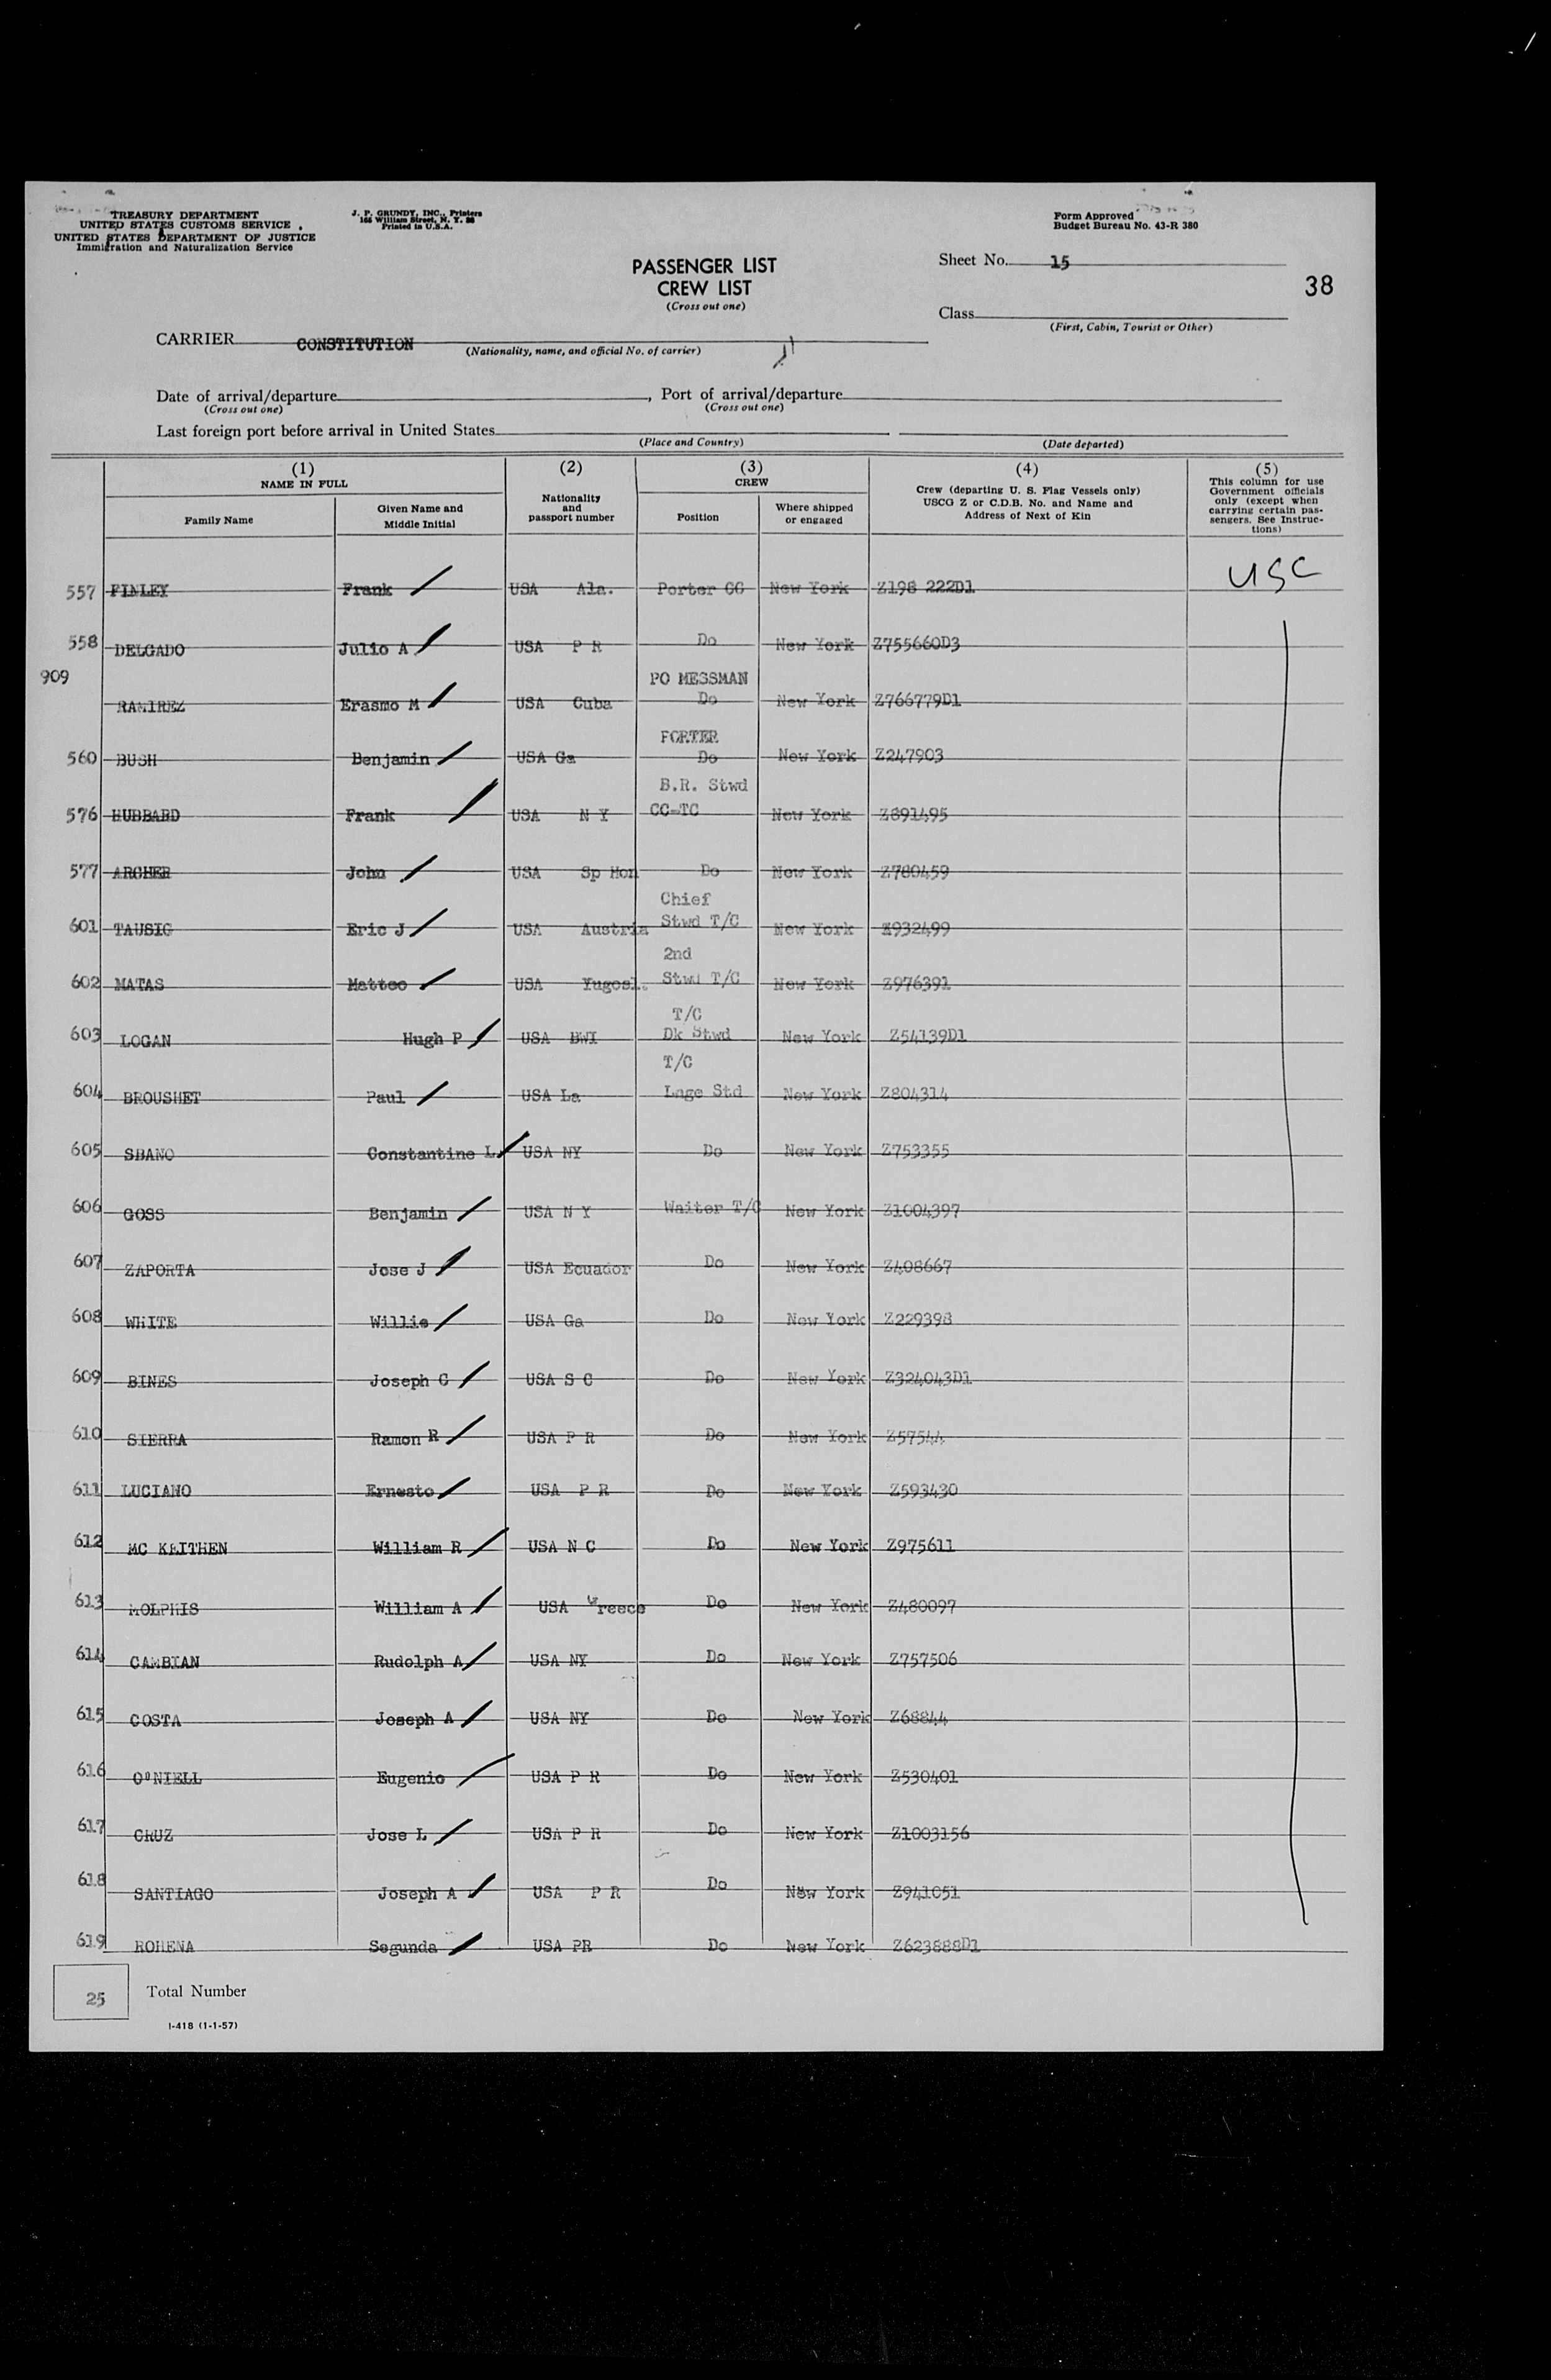 TREASURY DEPARTMENT
UNITED STATES CUSTOMS SERVICE
UNITED STATES DEPARTMENT OF JUSTICE
Immigration and Naturalization Service
J. P. GRUNDY, INC., Printers
166 William Street, N. Y. 38
Printed in U.S.A.
Form Approved
Budget Bureau No. 43-R 380
PASSENGER LIST
CREW LIST
(Cross out one)
Sheet No. 15
38
Class
(First, Cabin, Tourist or Other)
CARRIER CONSTITUTION
(Nationality, name, and official No. of carrier)
Date of arrival/departure , Port of arrival/departure
(Cross out one) (Cross out one)
Last foreign port before arrival in United States
(Place and Country) (Date departed)
(1) NAME IN FULL
Family Name
Given Name and Middle Initial
(2) Nationality and passport number
(3) CREW
Position
Where shipped or engaged
(4) Crew (departing U. S. Flag Vessels only) USCG Z or C.D.B. No. and Name and Address of Next of Kin
(5) This column for use Government officials only (except when carrying certain passengers. See Instructions)
557 FINLEY Frank USA Ala. Porter CC New York Z198 222D1 USC
558 DELGADO Julio A USA P R Do New York Z755660D3
909 RAMIREZ Erasmo M USA Cuba PO MESSMAN Do New York Z766779D1
560 BUSH Benjamin USA Ga PORTER Do New York Z247903
576 HUBBARD Frank USA N Y B.R. Stwd CC-TC New York Z891495
577 ARCHER John USA Sp Hon Do New York Z780459
601 TAUSIG Eric J USA Austria Chief Stwd T/C New York Z932499
602 MATAS Matteo USA Yugosl. 2nd Stwd T/C New York Z976391
603 LOGAN Hugh P USA BWI T/C Dk Stwd New York Z54139D1
604 BROUSHET Paul USA La T/C Lnge Std New York Z804314
605 SBANO Constantine L USA NY Do New York Z753355
606 GOSS Benjamin USA N Y Waiter T/C New York Z1004397
607 ZAPORTA Jose J USA Ecuador Do New York Z408667
608 WHITE Willie USA Ga Do New York Z229398
609 BINES Joseph C USA S C Do New York Z324043D1
610 SIERRA Ramon R USA P R Do New York Z57544
611 LUCIANO Ernesto USA P R Do New York Z593430
612 MC KEITHEN William R USA N C Do New York Z975611
613 MOLPHIS William A USA Greece Do New York Z480097
614 CAMBIAN Rudolph A USA NY Do New York Z757506
615 COSTA Joseph A USA NY Do New York Z68844
616 O'NIELL Eugenio USA P R Do New York Z530401
617 CRUZ Jose L USA P R Do New York Z1003156
618 SANTIAGO Joseph A USA P R Do New York Z941051
619 ROHENA Segunda USA PR Do New York Z623888D1
25 Total Number
I-418 (1-1-57)